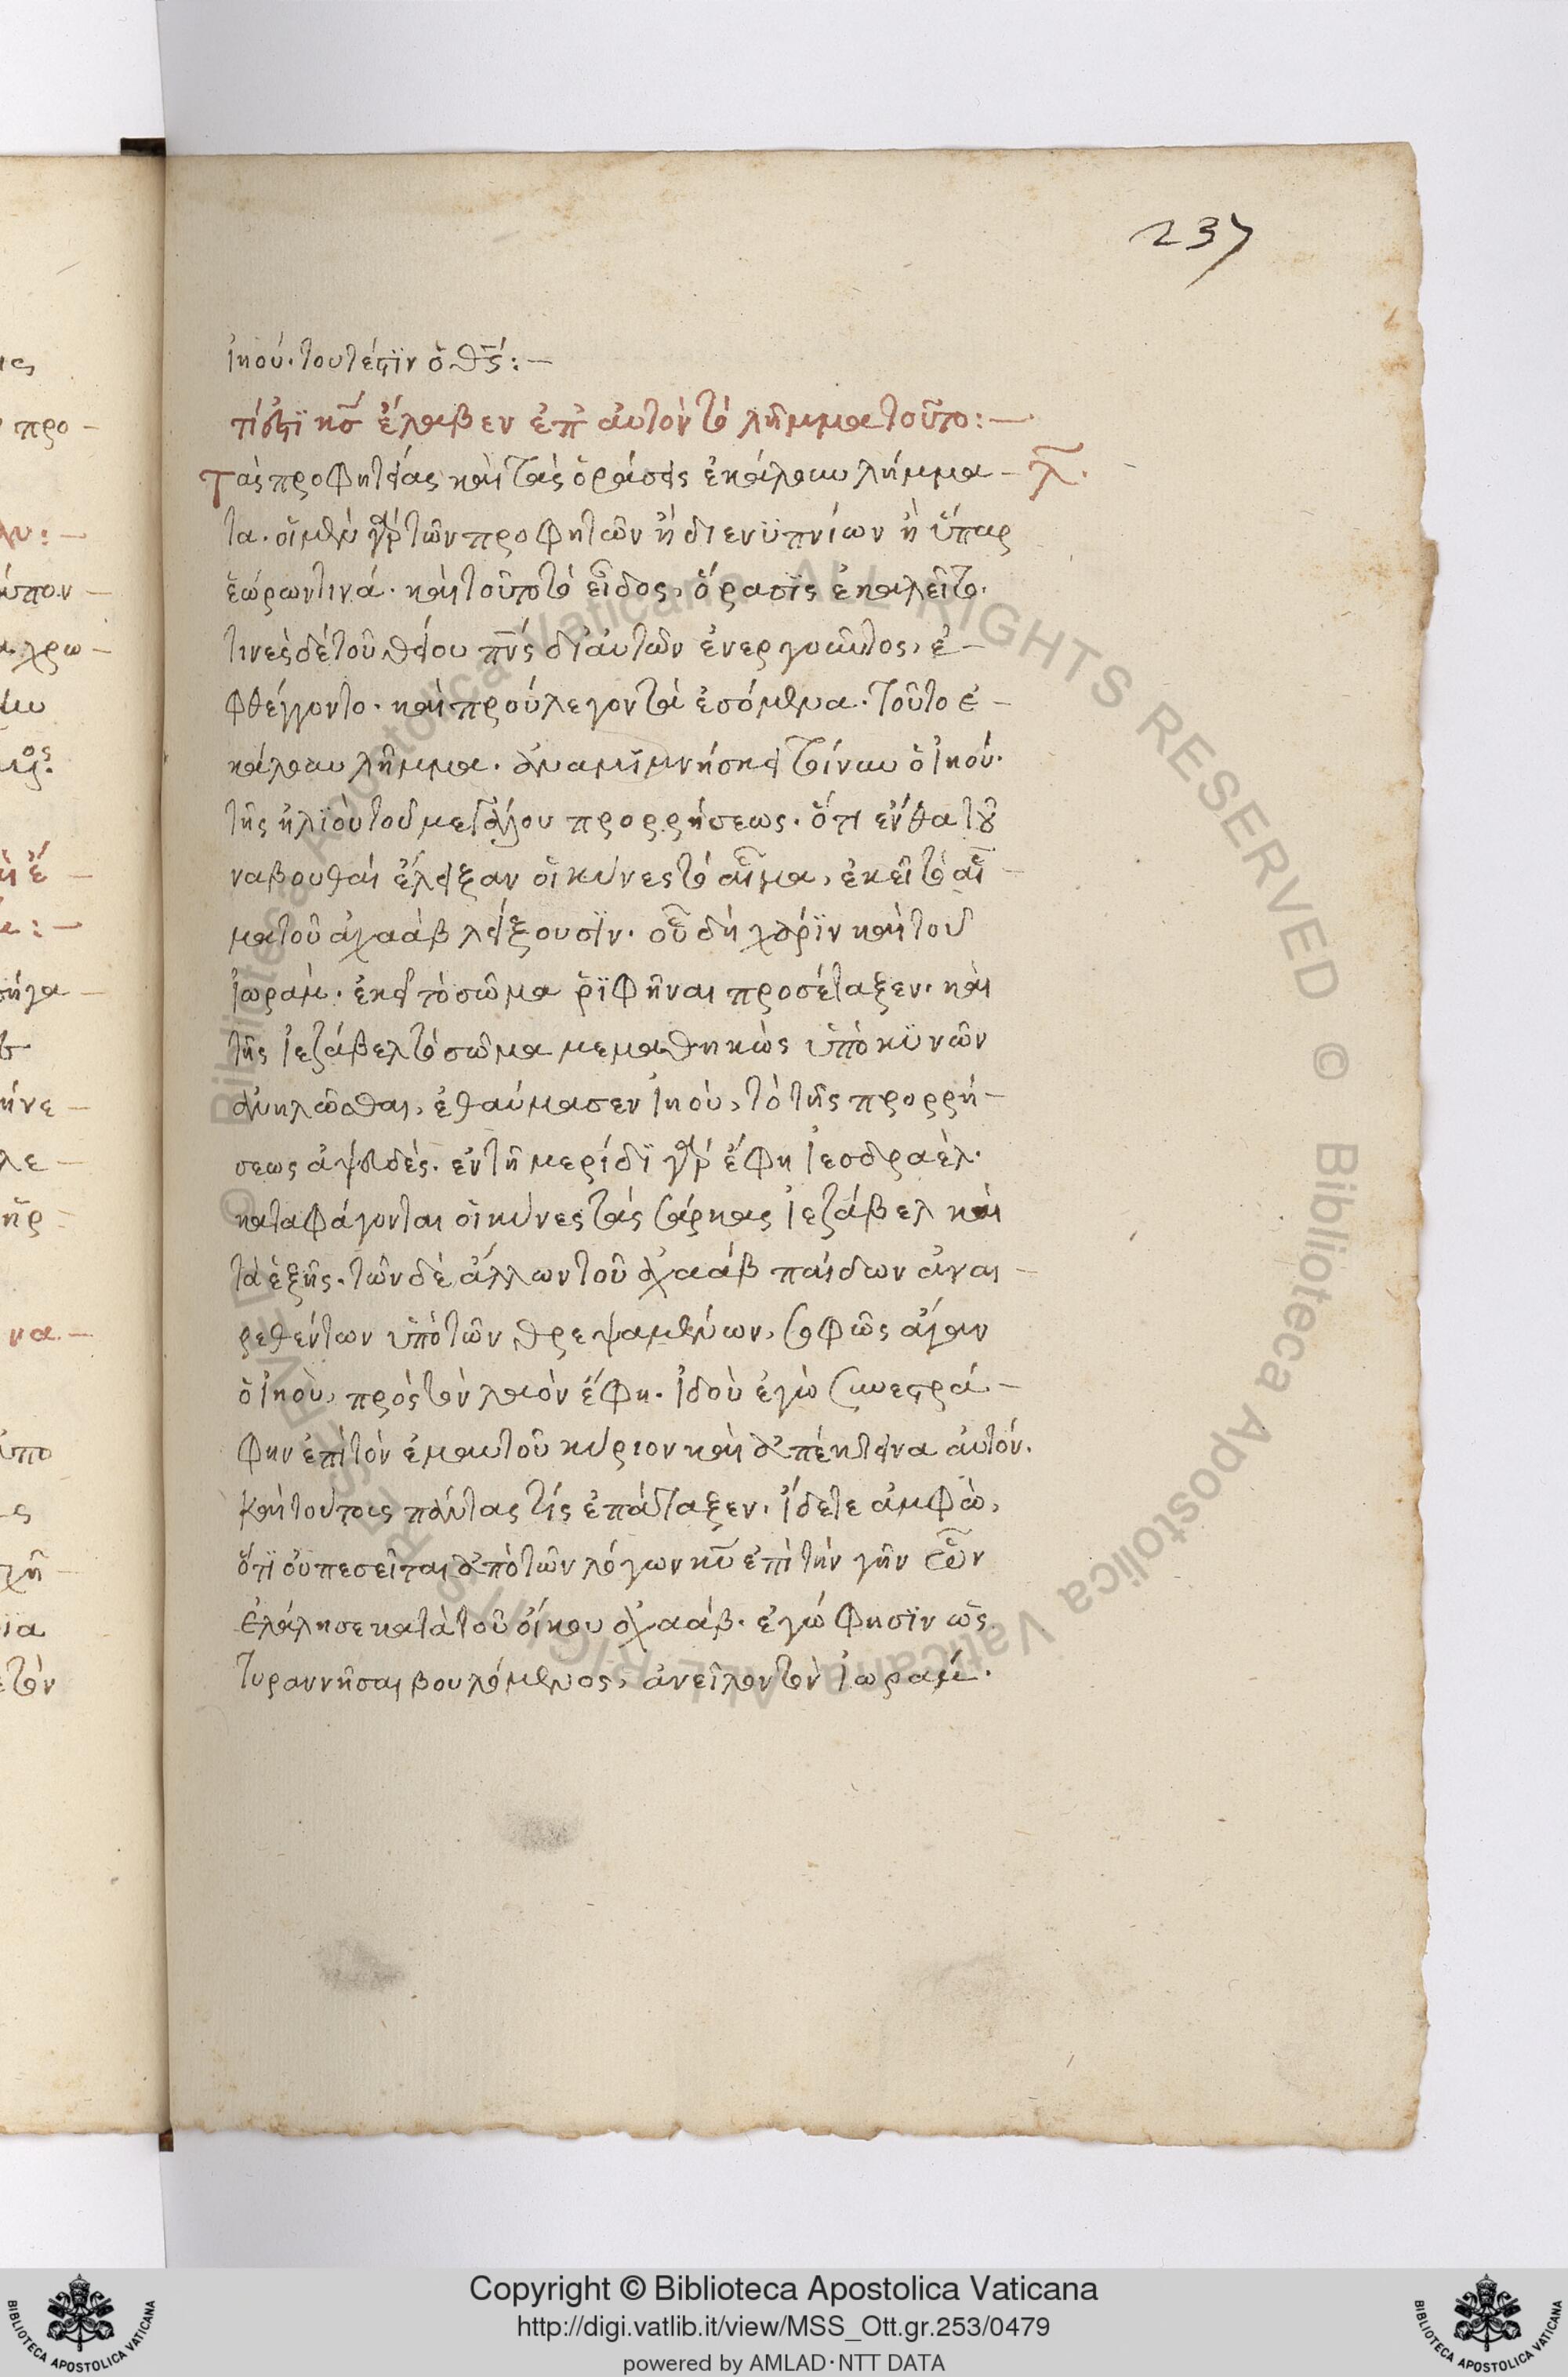 237
ἰηού. τουτέστιν ὁ θς:—
τί ἐστι κς ἔλαβεν ἐπ' αὐτὸν τὸ λῆμμα τοῦτο:—
Τὰς προφητείας καὶ τὰς ὁράσεις ἐκάλουν λήμμα- λ.
τα. οἱ μὲν γὰρ τῶν προφητῶν ἢ δι ἐνϋπνίων ἢ ὕπαρ
ἑώρων τινά. καὶ τοῦτο τὸ εἶδος, ὅρασις ἐκαλεῖτο.
τινὲς δὲ τοῦ θείου πνς δι' αὐτῶν ἐνεργοῦντος, ἐ-
φθέγγοντο. καὶ προύλεγον τὰ ἐσόμενα. τοῦτο ἐ-
κάλουν λῆμμα. ἀναμιμνήσκει τοίνυν ὁ ἰηού.
τῆς ἠλιοὺ τοῦ μεγάλου προρρήσεως. ὅτι ἔνθα τοῦ
ναβουθαὶ ἔλειξαν οἱ κύνες τὸ αἷμα, ἐκεῖ τὸ αἷ-
μα τοῦ ἀχαὰβ λείξουσιν. οὗ δὴ χάριν καὶ τοῦ
ἰωραμ. ἐκεῖ τὸ σῶμα ῥιφῆναι προσέταξεν. καὶ
τῆς ἰεζάβελ τὸ σῶμα μεμαθηκὼς ὑπὸ κυνῶν
ἀνηλῶσθαι, ἐθαύμασεν ἰηοὺ, τὸ τῆς προρρή-
σεως ἀψευδὲς. ἐν τῇ μερίδι γὰρ ἔφη ἰεσδραὲλ.
καταφάγονται οἱ κύνες τὰς σάρκας ἰεζάβελ καὶ
τὰ ἑξῆς. τῶν δὲ ἄλλων τοῦ ἀχαάβ παίδων ἀναι-
ρεθέντων ὑπὸ τῶν θρεψαμένων, σοφῶς ἄγαν
ὁ ἰηοὺ, πρὸς τὸν λαὸν ἔφη. ἰδοὺ ἐγὼ συνεστρά-
φην ἐπὶ τὸν ἐμαυτοῦ κύριον καὶ ἀπέκτεινα αὐτόν.
καὶ τούτους πάντας τίς ἐπάταξεν. ἴδετε ἀμφὼ,
ὅτι οὐ πεσεῖται ἀπὸ τῶν λόγων κυ ἐπὶ τὴν γῆν ὧν
ἐλάλησε κατὰ τοῦ οἴκου ἀχαάβ. ἐγώ φησιν ὡς
τυραννῆσαι βουλόμενος, ἀνεῖλον τὸν ἰωραμ.
Copyright © Biblioteca Apostolica Vaticana
http://digi.vatlib.it/view/MSS_Ott.gr.253/0479
powered by AMLAD·NTT DATA